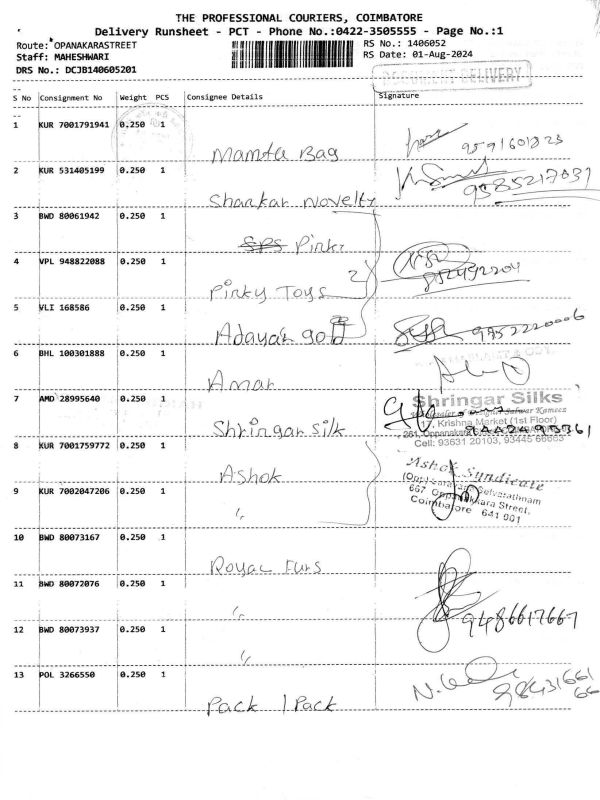 THE PROFESSIONAL COURIERS, COIMBATORE
Delivery Runsheet - PCT - Phone No.:0422-3505555 - Page No.:1
Route: OPANAKARASTREET
RS No.: 1406052
Staff: MAHESHWARI
RS Date: 01-Aug-2024
DRS No.: DCJB140605201
DELIVERY
S No Consignment No Weight PCS Consignee Details Signature
1 KUR 7001791941 0.250 1
Mamta Bag
2 KUR 531405199 0.250 1
Shankar Novelty 9585217031
3 BWD 80061942 0.250 1
SPS Pinky
4 VPL 948822088 0.250 1
Pinky Toys 2
5 VLI 168586 0.250 1
Adayar gold 9952220006
6 BHL 100301888 0.250 1
Amar
7 AMD 28995640 0.250 1
Shringar Silk
Shringar Silks
Wholesaler of Designer Salwar Kameez
17, Krishna Market (1st Floor)
261, Oppanakara
Cell: 93631 20103, 93445 66663
8 KUR 7001759772 0.250 1
Ashok
Ashok Syndicate
667 Oppanakkara Street,
Coimbatore 641 001
9 KUR 7002047206 0.250 1
"
10 BWD 80073167 0.250 1
Royal Furs
11 BWD 80072076 0.250 1
"
9486617667
12 BWD 80073937 0.250 1
"
13 POL 3266550 0.250 1
Pack 1 Pack